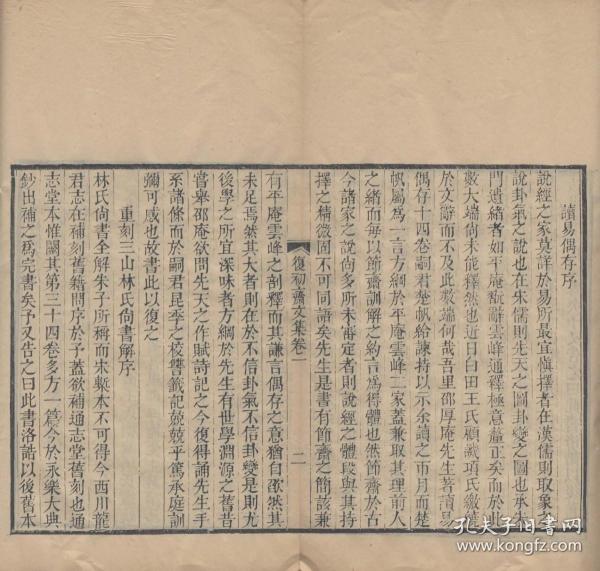 讀易偶存序
說經之家莫詳於易所最宜慎擇者在漢儒則取象之
說卦氣之說也在朱儒則先天之圖卦變之圖也承朱
門遺緒者如平庵翫辭雲峰通釋極意釐正矣而於此
數大端尚未能釋然也近日白田王氏顧
於文辭而不及此數端何哉吾里邵厚庵先生著讀易
偶存十四卷嗣君楚帆給諫持以示余讀之帀月而楚
帆屬為一言方綱於平庵雲峰二家蓋兼取其理前人
之緒而每以節齋訓解之約言為得體也然節齋於古
今諸家之說尚多所未審定者則說經之體段與其持
擇之精微固不可同語矣先生是書有節齋之簡該兼
復初齋文集卷一
二
有平庵雲峰之剖釋而其謙言偶存之意猶自欿然其
未足焉然其大者則在於不信卦氣不信卦變是則尤
後學之所宜深味者方綱於先生有世學淵源之舊昔
嘗舉邵庵欲問先天之作賦詩記之今復得誦先生手
系諸條而於嗣君昆季之校讐籤記兢兢乎篤承庭訓
彌可感也故書此以復之
重刻三山林氏尚書解序
林氏尚書全解朱子所稱而宋槧本不可得今西川龍
君志在補刻舊籍問序於予蓋欲補通志堂舊刻也通
志堂本惟闕其第三十四卷多方一篇今於永樂大典
鈔出補之為完書矣予又告之曰此書洛誥以後舊本
孔夫子旧书网
www.kongfz.com